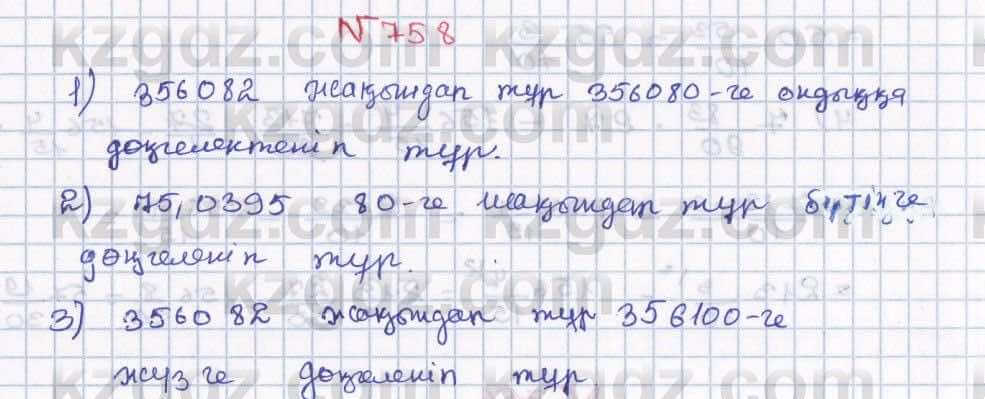 №758
1) 356082 жақындап тұр 356080-ге ондыққа
дөңгелектеніп тұр.
2) 75,0395 80-ге жақындап тұр бүтінге
дөңгеленіп тұр.
3) 356082 жақындап тұр 356100-ге
жүзге дөңгеленіп тұр.
kzgdz.com